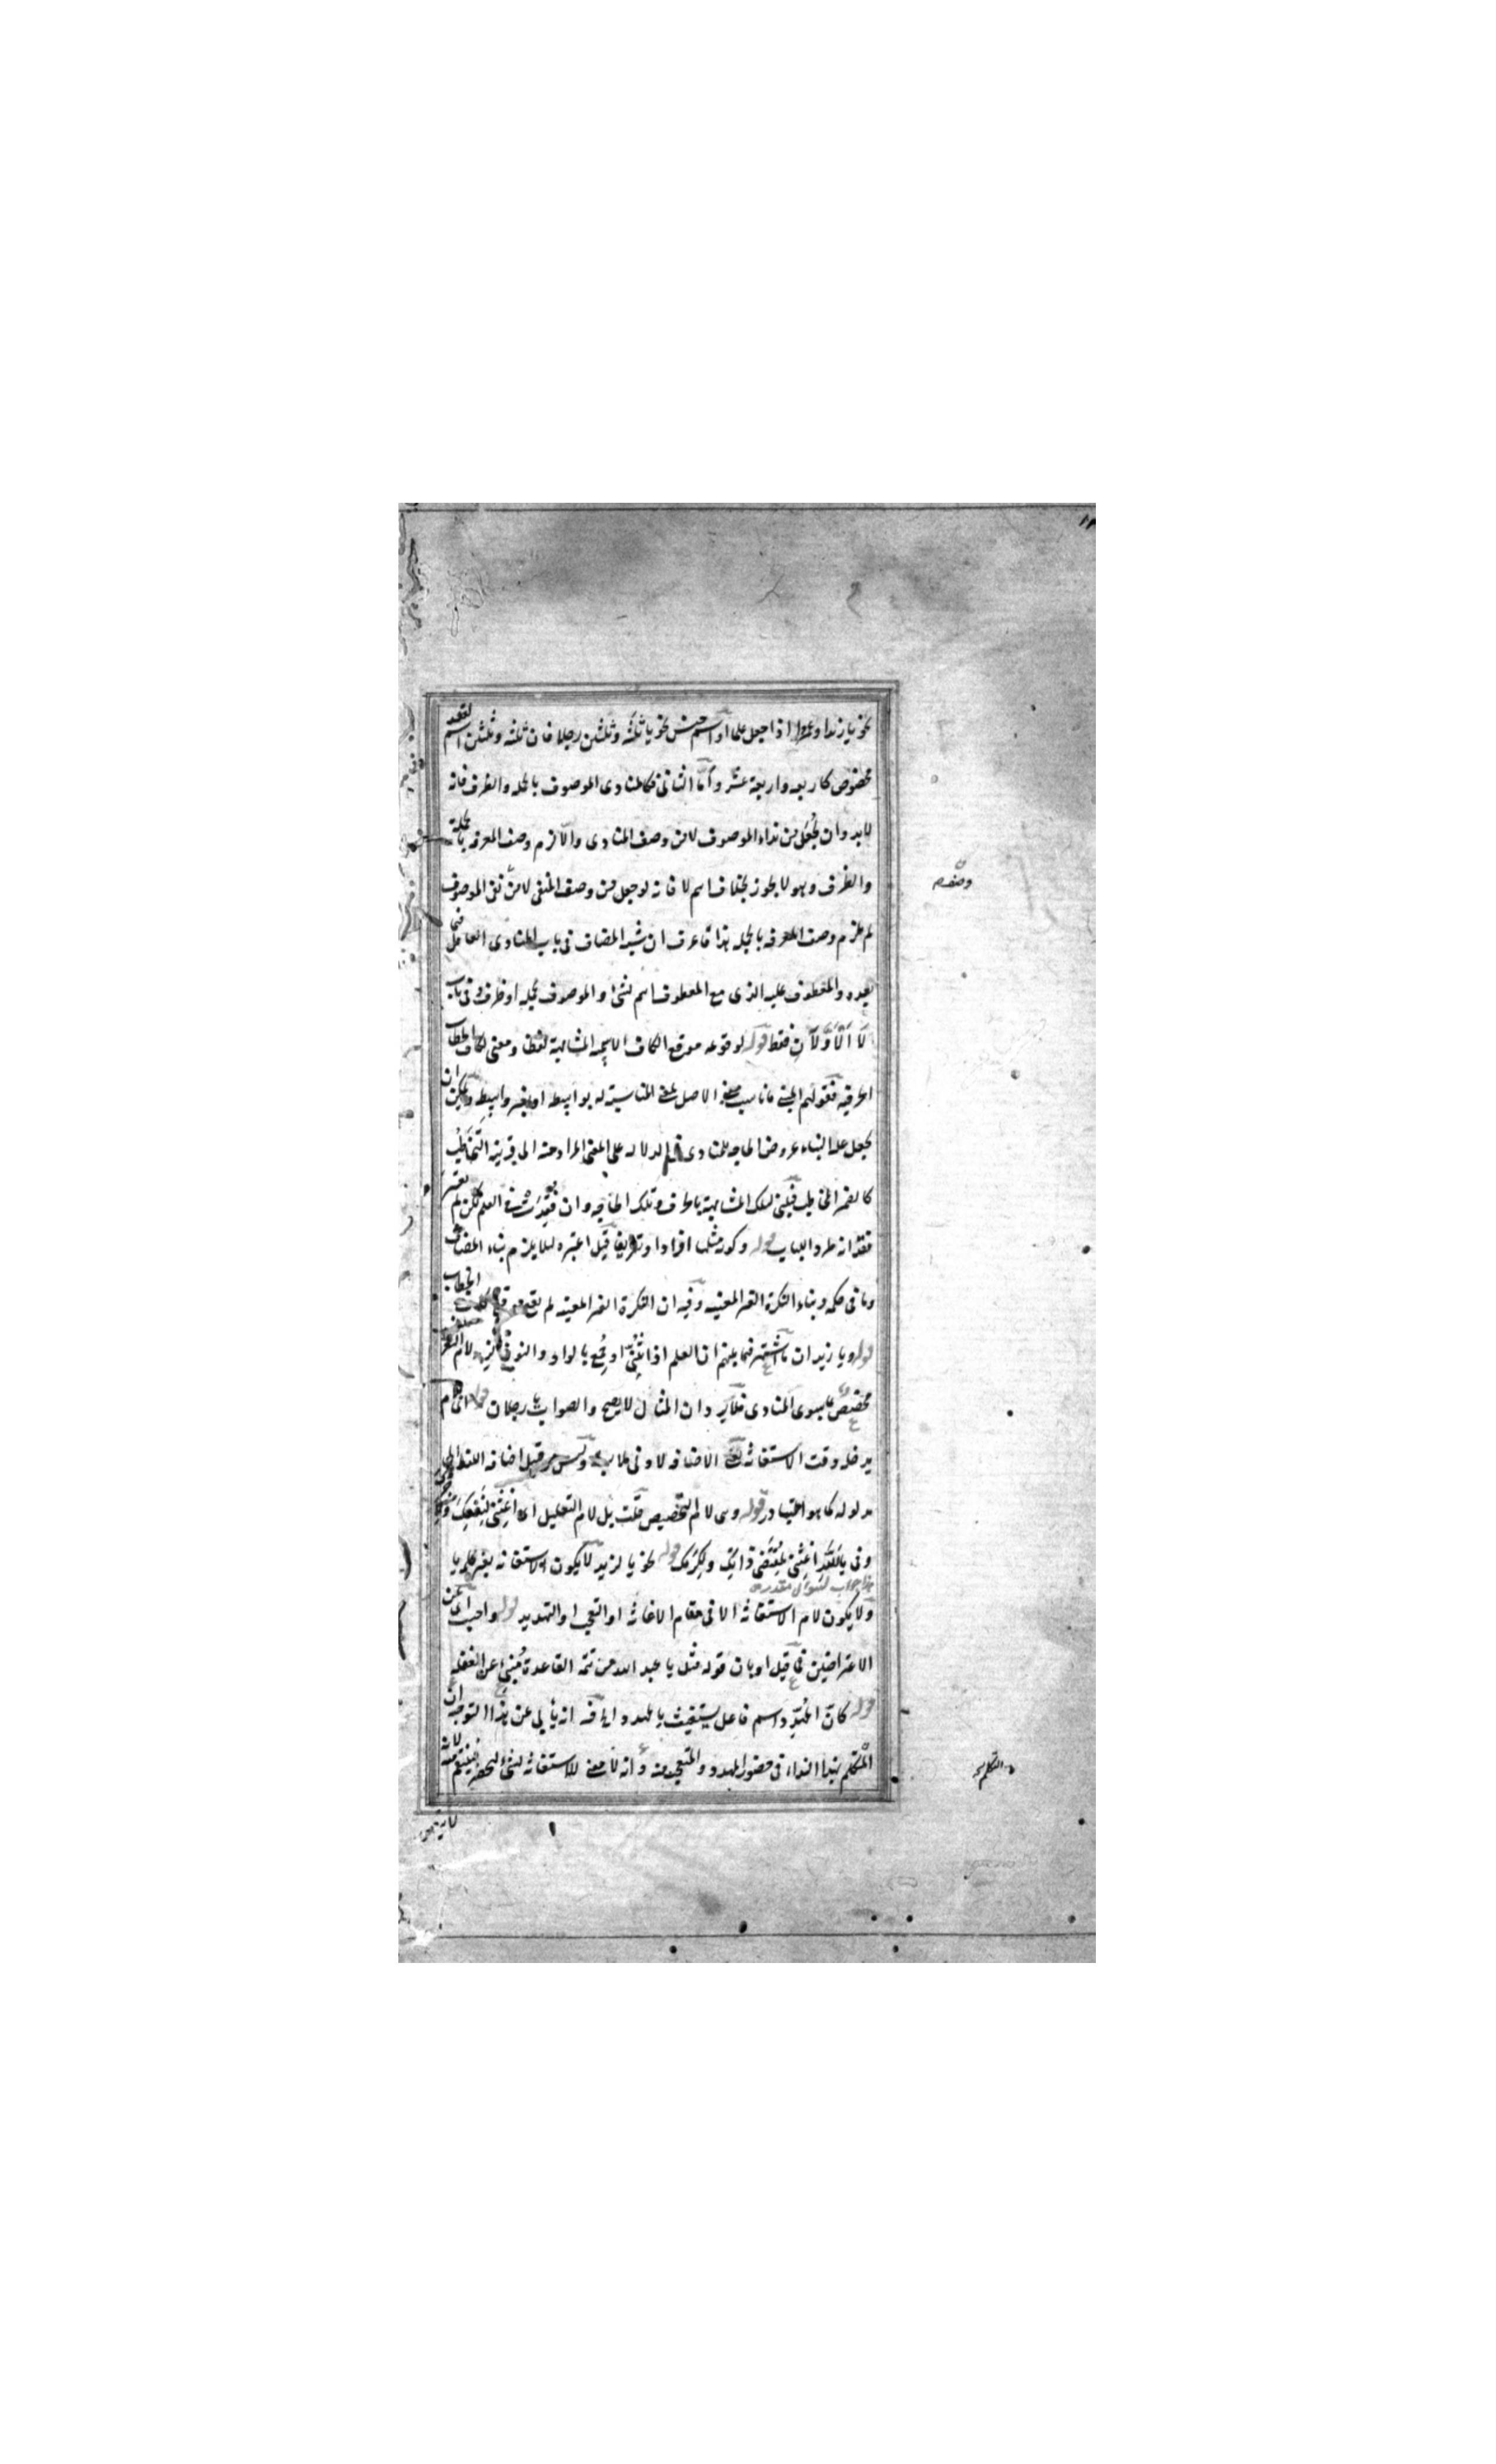 نحو يا زيدا وعمرا اذا جعل علما او اسم جنس نحو يا ثلثة وثلثين رجلا فان ثلثة وثلثين اسم لعقد
مخصوص كاربعه واربعة عشر واما الثانى فكالمنادى الموصوف بالجمله والظرف فانه
لابد وان يجعل من نداء الموصوف لا من وصف المنادى والا لزم وصف المعرفه بالجملة
والظرف وهو لا يجوز بخلاف اسم لا فانه لو جعل من وصف المنفى لا من نفى الموصوف
لم يلزم وصف المعرفه بالجمله هذا فاعرف ان شبه المضاف فى باب المنادى العامل فيما
بعده والمعطوف عليه الذى مع المعطوف اسم لشئ والموصوف بجمله او ظرف وفى باب
لا الاولان فقط قوله لوقوعه موقع الكاف الاسميه المشابهة لفظا ومعنى لكاف الخطاب
الحرفيه فقولهم المبنى ما ناسب مبنى الاصل بمعنى المناسبة له بواسطه او بغير واسطه ويمكن ان
يجعل علة البناء عروض الحاجه للمنادى فى الدلاله على المعنى المراد منه الى قرينه التخاطب
كالضمير المخاطب فبنى لتلك المشابهة بالحرف وتلك الحاجه وان فقدت فى العلم لكن لم يعتبر
فقدانه طردا للباب قوله وكونه مثلها افرادا وتعريفا قيل اعتبره لئلا يلزم بناء المضاف
وما فى حكمه وبناء النكرة الغير المعينه وفيه ان النكرة الغير المعينه لم تقع موقع كاف الخطاب
قوله ويا زيدان ما اشتهر فيما بينهم ان العلم اذا ثنى او جمع بالواو والنون لزمه لام التعريف
مختص بما سوى المنادى فلا يرد ان المثال لا يصح والصواب يا رجلان قوله اى لام
يدخله وقت الاستغاثه الاضافه لادنى ملابسه وليس من قبيل اضافه اللفظ الى
مدلوله كما هو المتبادر قوله وهى لام التخصيص قلت بل لام التعليل اى اغثنى لنفعك
وفى يا لله اغثنى لمقتضى ذاتك ولكرمك قوله نحو يا لزيد لا يكون الاستغاثه بغير كلمه يا
هذا جواب لسؤال مقدر
ولا يكون لام الاستغاثه الا فى مقام الاغاثه او التعجب او التهديد قوله واجيب عن
الاعتراضين قيل او بان قوله مثل يا عبد الله من تتمه القاعدة مبنى عن الغفله
قوله كان المهدد اسم فاعل يستغيث بالمهدد الخ فيه انه يأبى عن هذا التوجيه ان
المتكلم بهذا النداء فى حضور المهدد والمتعجب منه وانه لا معنى للاستغاثه لشئ